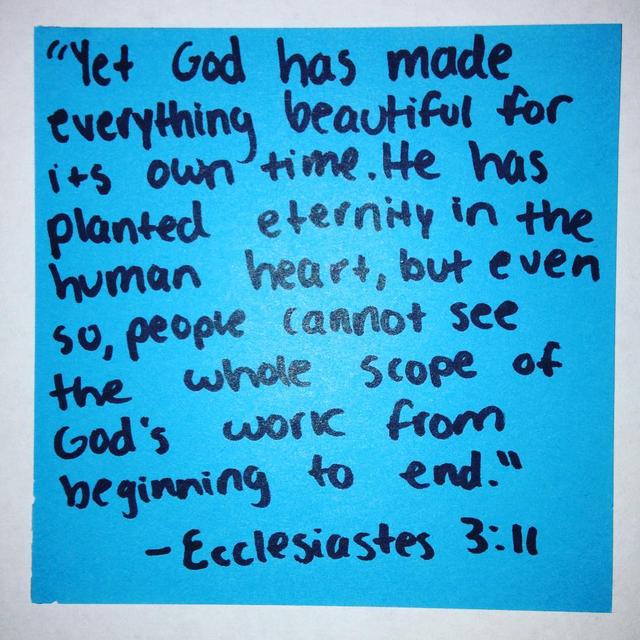 "Yet God has made
everything beautiful for
its own time. He has
planted eternity in the
human heart, but even
so, people cannot see
the whole scope of
God's work from
beginning to end."
- Ecclesiastes 3:11